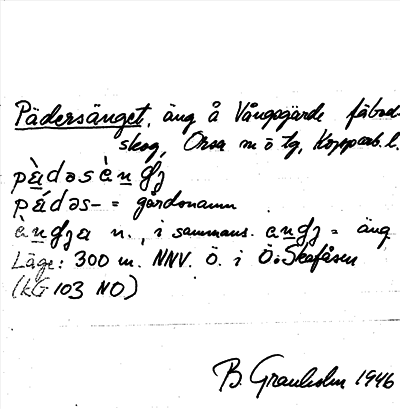 Pädersänget, äng å Vångsgärde fäbod-
skog, Orsa m o tg, Kopparb. l.
pä̀dəsä̀ngj
pä́dəs- = gårdsnamn
ä̀ngja n., i sammans. angj = äng
Läge: 300 m. NNV. Ö. i Ö. Skafåsen
(kG 103 NO)
B. Granholm 1946